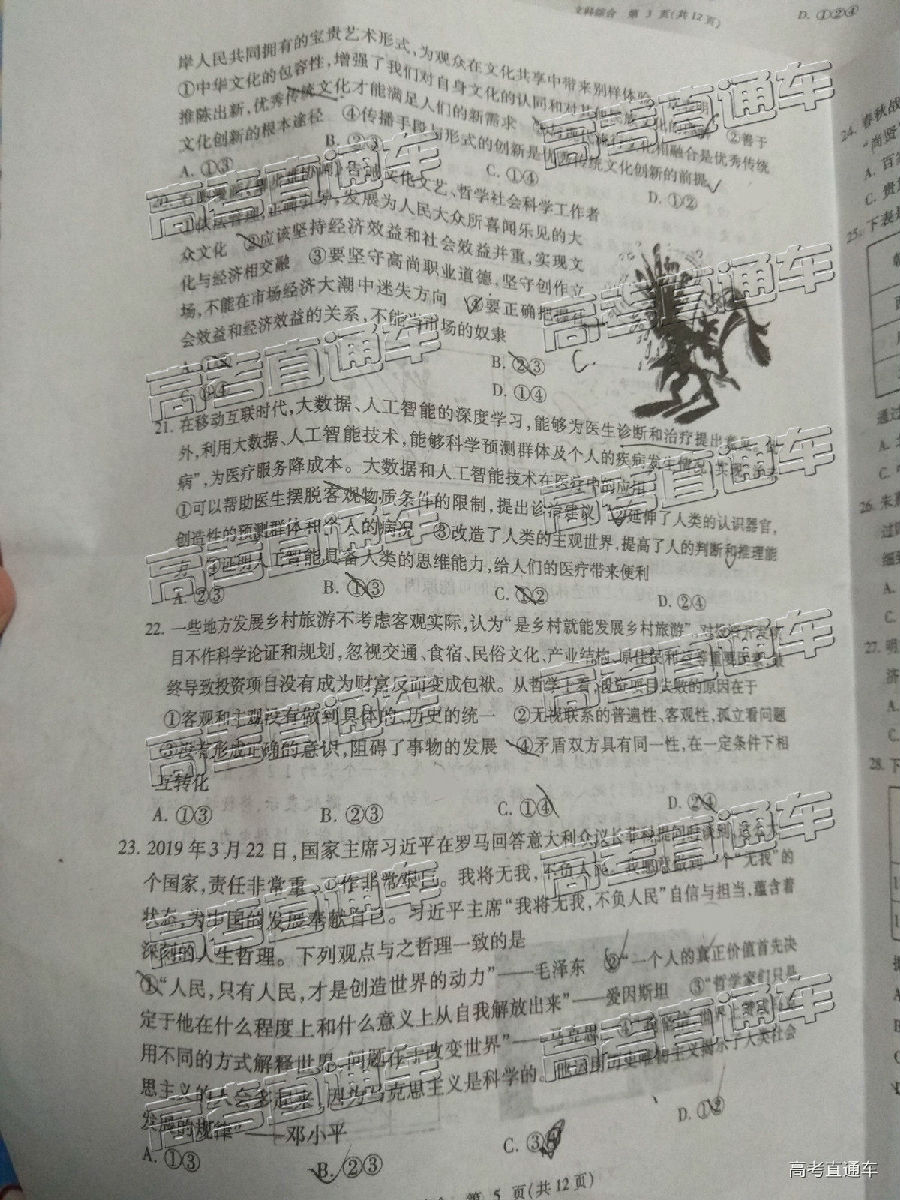 文科综合 第 3 页(共12页)
D. ①②④
岸人民共同拥有的宝贵艺术形式,为观众在文化共享中带来别样体验
①中华文化的包容性,增强了我们对自身文化的认同和对其他民族文化的 ②善于
推陈出新,优秀传统文化才能满足人们的新需求 相融合是优秀传统
文化创新的根本途径 ④传播手段与形式的创新是优秀传统文化创新的前提
A. ①③ B. ②③ C. ①④ D. ①②
20. 文化文艺、哲学社会科学工作者
发展为人民大众所喜闻乐见的大
众文化 ②应该坚持经济效益和社会效益并重,实现文
化与经济相交融 ③要坚守高尚职业道德,坚守创作立
场,不能在市场经济大潮中迷失方向 ④要正确把握社
会效益和经济效益的关系,不能当市场的奴隶
B. ②③
C.
D. ①④
21. 在移动互联时代,大数据、人工智能的深度学习,能够为医生诊断和治疗提出意见。
外,利用大数据、人工智能技术,能够科学预测群体及个人的疾病发生情况,实现
病”,为医疗服务降成本。大数据和人工智能技术在医疗中的应用
①可以帮助医生摆脱客观物质条件的限制,提出诊疗建议 ②延伸了人类的认识器官,
创造性的预测群体和个人的病况 ③改造了人类的主观世界,提高了人的判断和推理能
力 ④证明人工智能具备人类的思维能力,给人们的医疗带来便利
A. ②③ B. ①③ C. ①② D. ②④
22. 一些地方发展乡村旅游不考虑客观实际,认为“是乡村就能发展乡村旅游”,对投资开发项
目不作科学论证和规划,忽视交通、食宿、民俗文化、产业结构、原住民利益等重要因素,最
终导致投资项目没有成为财富反而变成包袱。从哲学上看,投资项目失败的原因在于
①客观和主观没有做到具体的、历史的统一 ②无视联系的普遍性、客观性,孤立看问题
③没有形成正确的意识,阻碍了事物的发展 ④矛盾双方具有同一性,在一定条件下相
互转化
A. ①③ B. ②③ C. ①④ D. ②④
23. 2019年3月22日,国家主席习近平在罗马回答意大利众议长菲科提问时谈到,这么大
个国家,责任非常重、工作非常艰巨。我将无我,不负人民。我愿意做到一个“无我”的
状态,为中国的发展奉献自己。习近平主席“我将无我,不负人民”自信与担当,蕴含着
深刻的人生哲理。下列观点与之哲理一致的是
①“人民,只有人民,才是创造世界的动力”——毛泽东 ②“一个人的真正价值首先决
定于他在什么程度上和什么意义上从自我解放出来”——爱因斯坦 ③“哲学家们只是
用不同的方式解释世界,问题在于改变世界”——马克思 ④ 世界上赞成马克
思主义的人会多起来,因为马克思主义是科学的。他运用历史唯物主义揭示了人类社会
发展的规律”——邓小平
A. ①③ B. ②③ C. ③④ D. ①②
第 5 页(共12页)
24. 春秋战
“尚贤”
A. 百
C. 贵
25. 下表是
通过
A.
C.
26. 朱
过
细
A.
C.
27. 明
济
A.
C.
28. 下
高考直通车
高考直通车
高考直通车
高考直通车
高考直通车
高考直通车
高考直通车
高考直通车
高考直通车
高考直通车
高考直通车
高考直通车
高考直通车